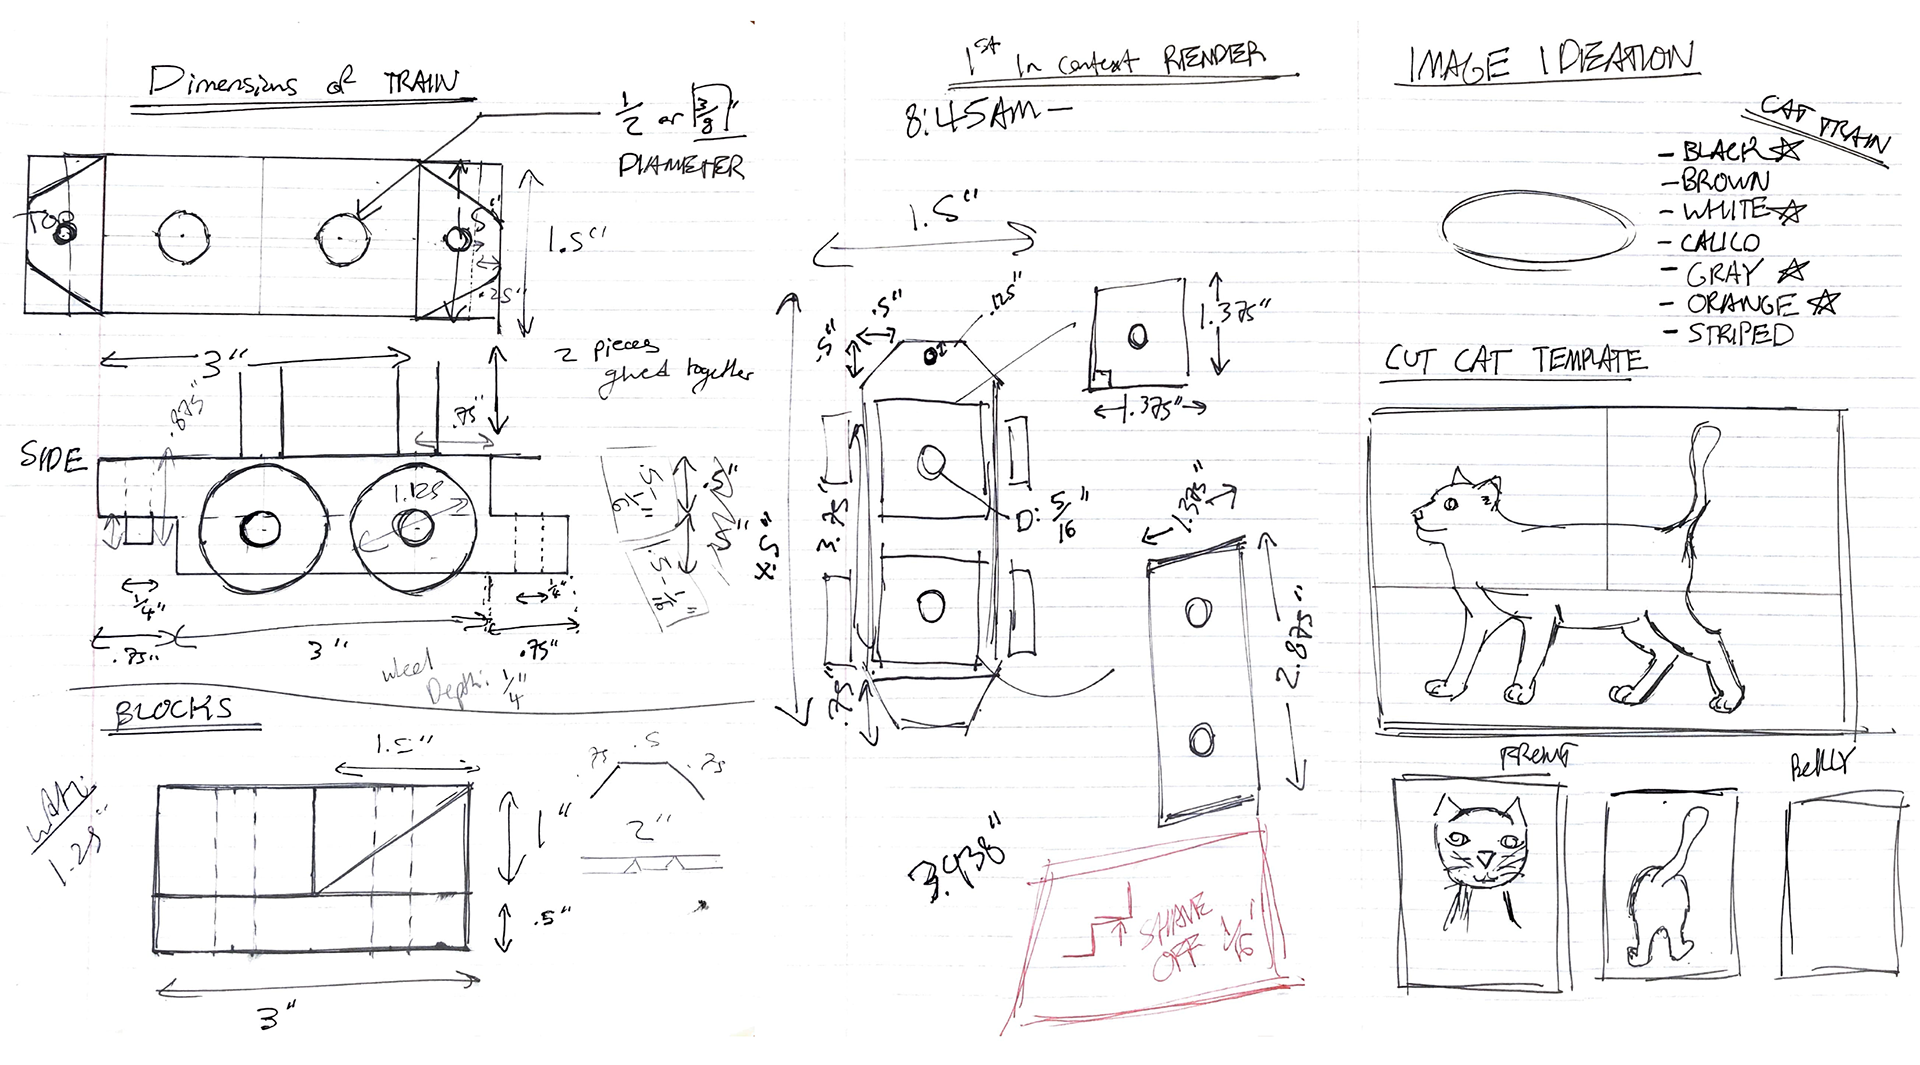 Dimensions of TRAIN
1/2 or 3/8"
DIAMETER
TOP
.5"
.25"
1.5"
3"
2 pieces
glued together
.875"
.75"
SIDE
1.125
.5"
.5-1/16"
.5-1/16"
1/4"
1/4"
.75"
3"
.75"
wheel
Depth: 1/4"
BLOCKS
1.5"
Width:
1.25"
1"
.5"
3"
.75 .5 .75
2"
1ST In context RENDER
8:45AM—
1.5"
.5"
.5"
.125"
1.375"
1.375"
3.75"
D: 5/16"
1.375"
.75"
2.875"
3.938"
SHAVE
OFF 1/16"
IMAGE IDEATION
CAT TRAIN
- BLACK ☆
- BROWN
- WHITE ☆
- CALICO
- GRAY ☆
- ORANGE ☆
- STRIPED
CUT CAT TEMPLATE
FRONT
BELLY